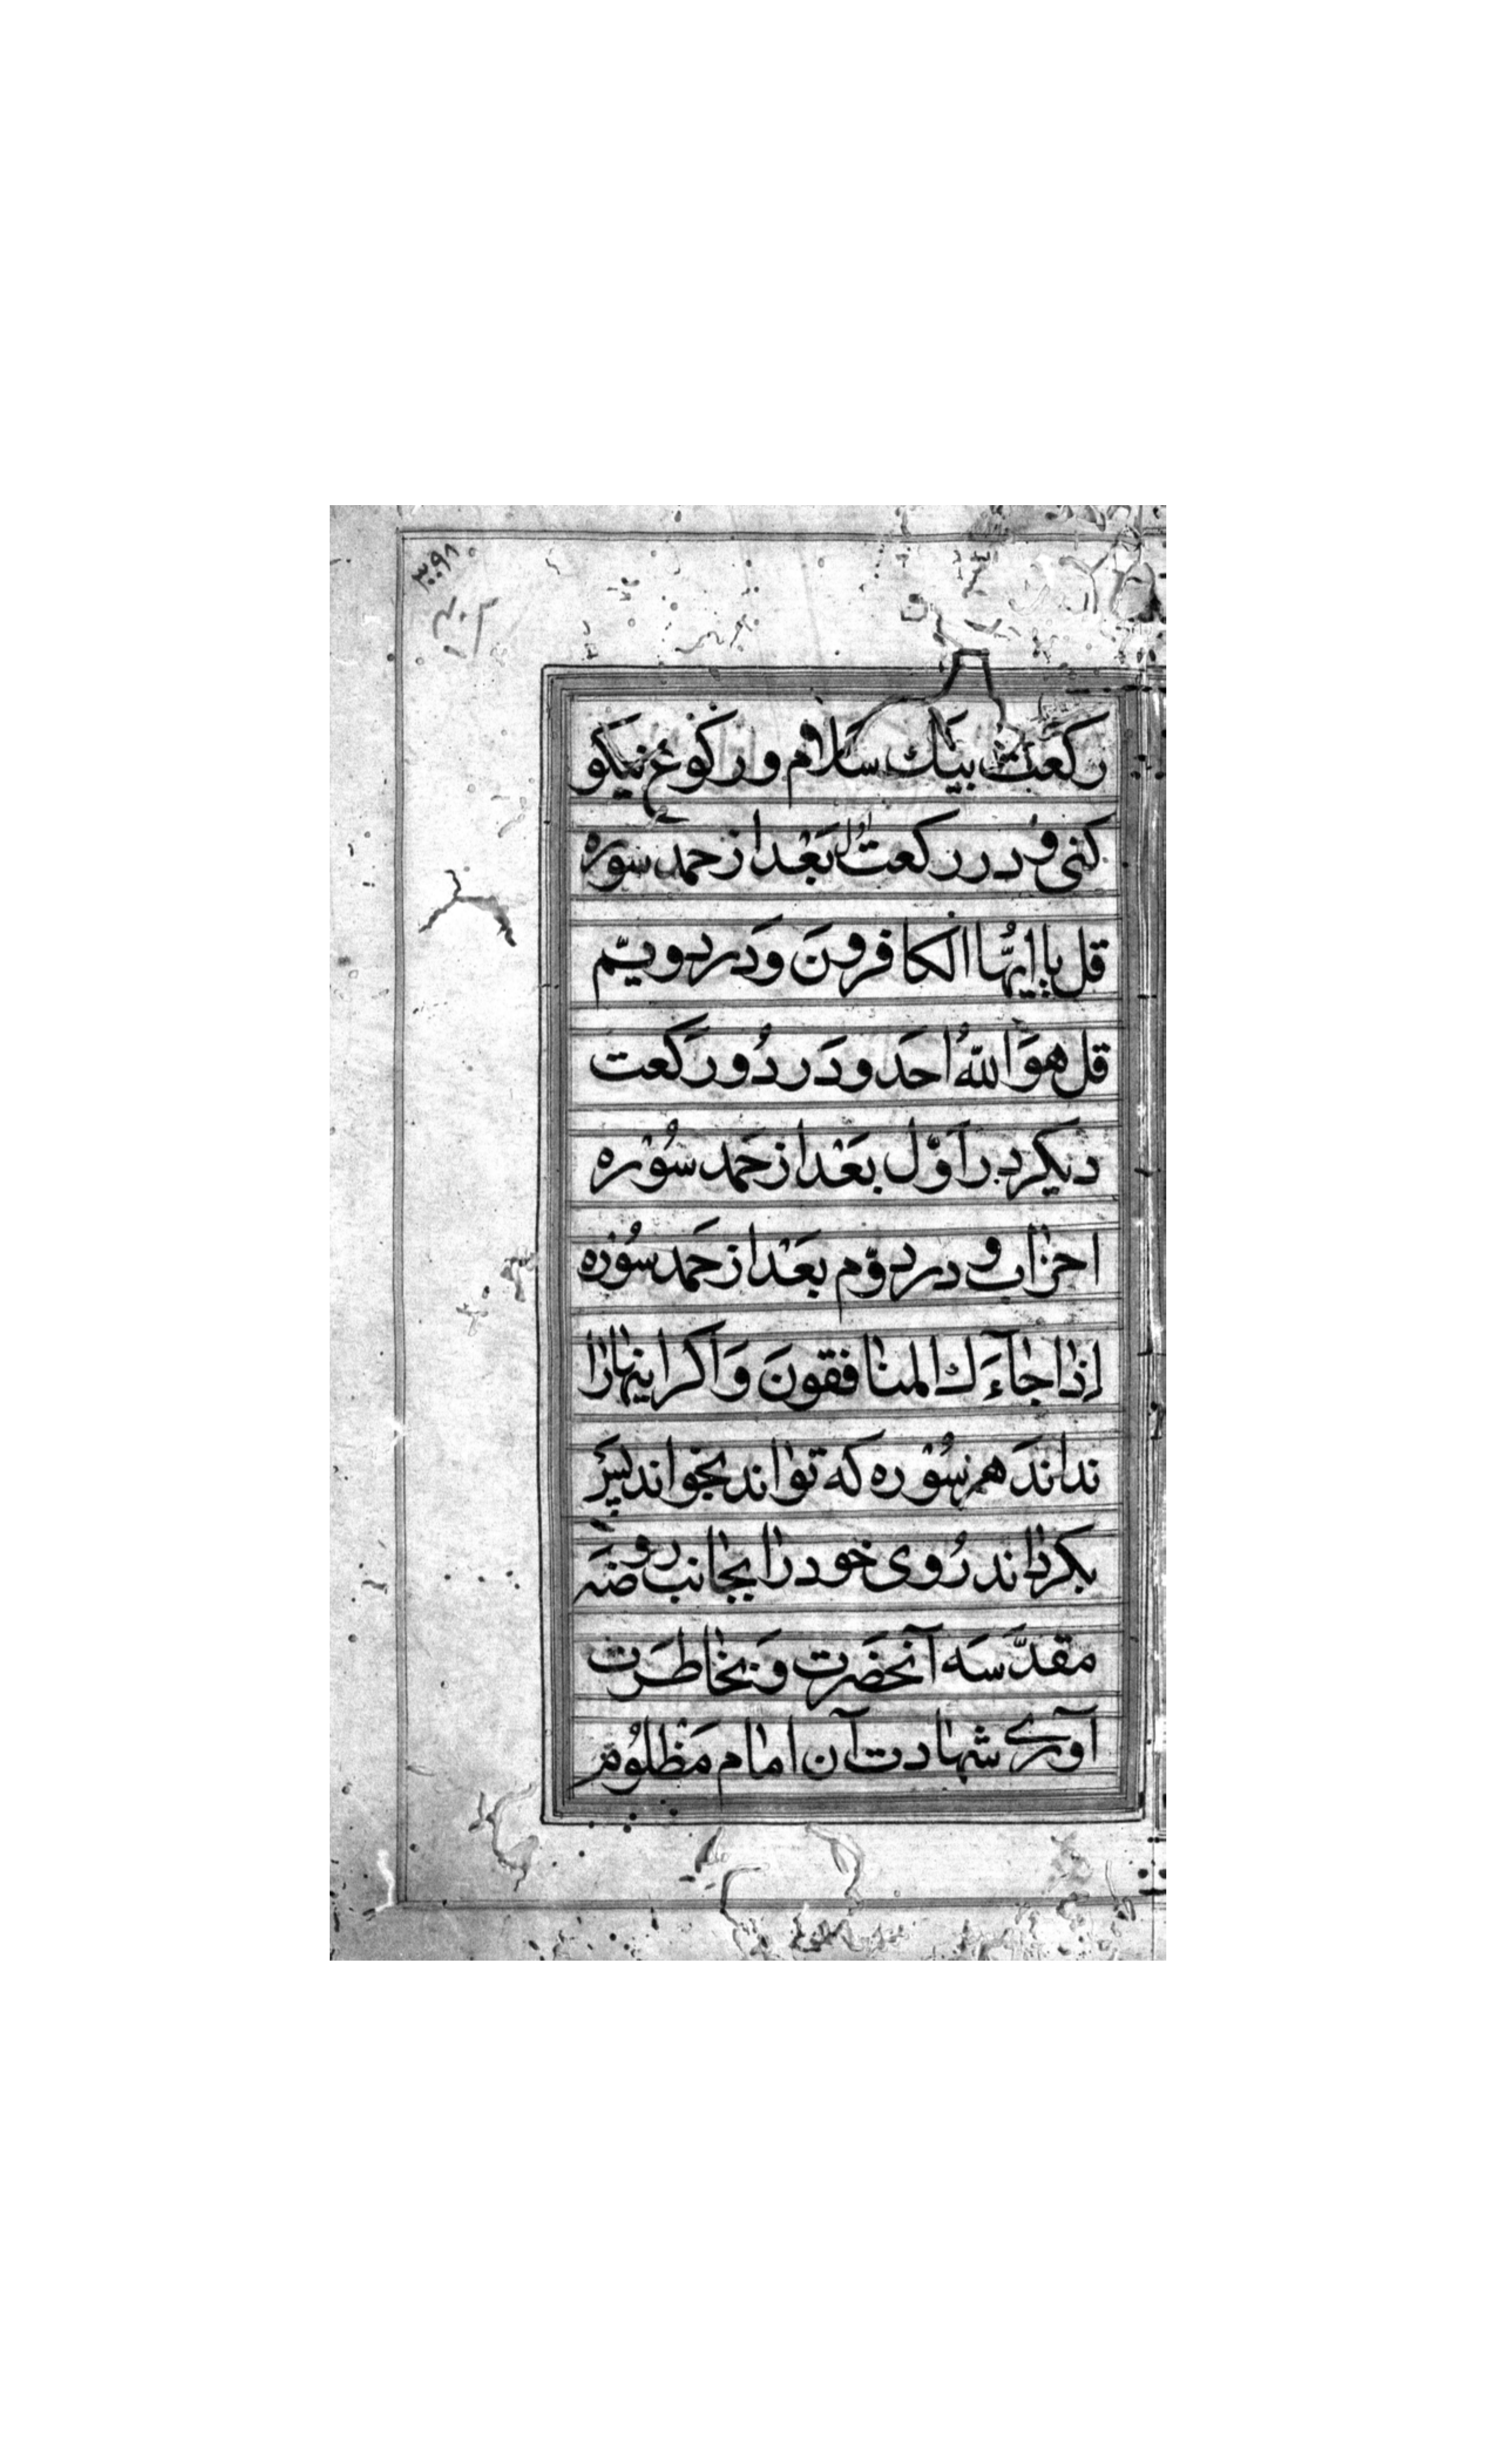 ۳۰۹۸
رکعت بیَك سَلام و رکُوع نیکو
کنی و در رکعت اول بَعْد از حمد سوره
قل یا ایّهُا الکافرونَ وَدر دویّم
قل هوَ اللهُ احَد ودَر دُو رکَعت
دیکر در اَوّل بعَْد از حَمد سُوْره
احزاب و در دوّم بعَْد از حَمد سُوْره
اِذا جآءَك المنافقونَ وَاکر اینهارا
نداندَ هر سُوْره که تواند بخواند پسَ
بکرداند رُوی خود را بجانب روضَه
مقدَّسَه آنحضَرت وَ بخاطرَت
آوری شهادت آن امام مَظْلوُم